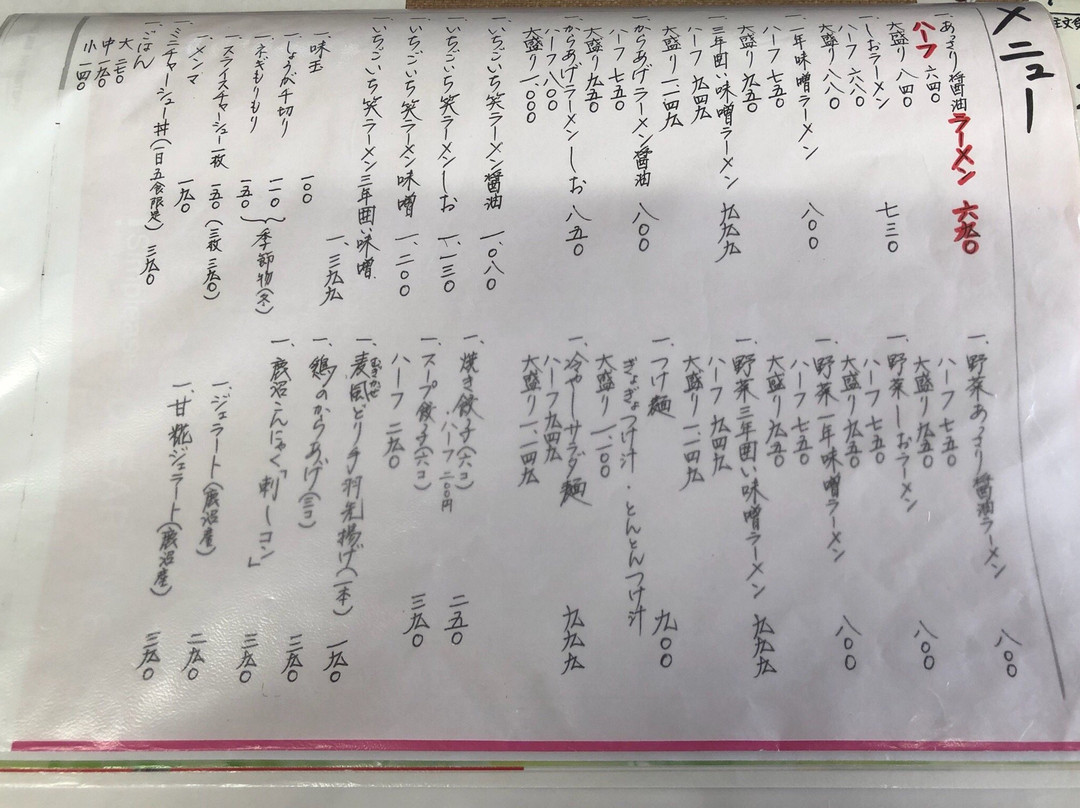 メニュー
一、あっさり醤油ラーメン 六九〇
ハーフ 六四〇
大盛り 八四〇
一、しおラーメン 七三〇
ハーフ 六八〇
大盛り 八八〇
一、一年味噌ラーメン 八〇〇
ハーフ 七五〇
大盛り 九五〇
一、三年囲い味噌ラーメン 九九九
ハーフ 九四九
大盛り 一、一四九
一、からあげラーメン醤油 八〇〇
ハーフ 七五〇
大盛り 九五〇
一、からあげラーメンしお 八五〇
ハーフ 八〇〇
大盛り 一、〇〇〇
一、いちごいち笑ラーメン醤油 一、〇八〇
一、いちごいち笑ラーメンしお 一、一三〇
一、いちごいち笑ラーメン味噌 一、二〇〇
一、いちごいち笑ラーメン三年囲い味噌 一、三九九
一、味玉 一〇〇
一、しょうが千切り 一一〇
一、ネギもりもり 一五〇
季節物(冬)
一、スライスチャーシュー一枚 一五〇(三枚 三九〇)
一、メンマ 一九〇
一、ミニチャーシュー丼(一日五食限定) 三九〇
一、ごはん
大 二七〇
中 一九〇
小 一四〇
一、野菜あっさり醤油ラーメン 八〇〇
ハーフ 七五〇
大盛り 九五〇
一、野菜しおラーメン 八〇〇
ハーフ 七五〇
大盛り 九五〇
一、野菜一年味噌ラーメン 八〇〇
ハーフ 七五〇
大盛り 九五〇
一、野菜三年囲い味噌ラーメン 九九九
ハーフ 九四九
大盛り 一、一四九
一、つけ麺 九〇〇
ぎょぎょつけ汁・とんとんつけ汁
大盛り 一、一〇〇
一、冷やしサラダ麺 九九九
ハーフ 九四九
大盛り 一、一四九
一、焼き餃子(六コ) 二五〇
ハーフ 二〇〇円
一、スープ餃子(六コ) 三九〇
ハーフ 二九〇
一、麦風どり手羽先揚げ(一本) 一九〇
むぎかぜ
一、鶏のからあげ(三コ) 三九〇
一、鹿沼こんにゃく「刺しコン」 三九〇
一、ジェラート(鹿沼産) 二九〇
一、甘糀ジェラート(鹿沼産) 三九〇